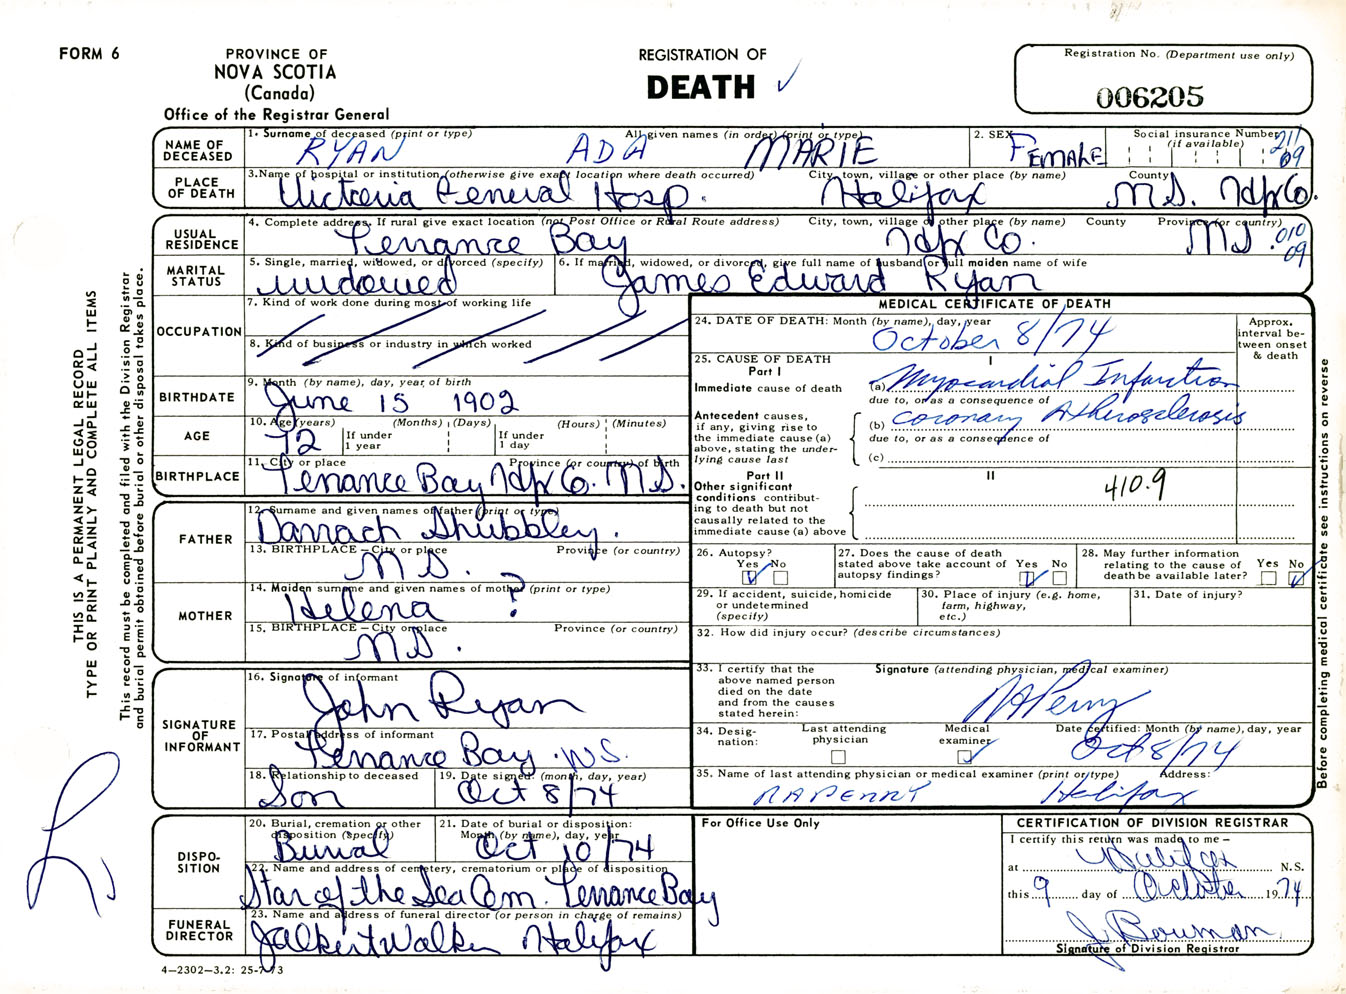 FORM 6
PROVINCE OF
NOVA SCOTIA
(Canada)
Office of the Registrar General
REGISTRATION OF
DEATH
Registration No. (Department use only)
006205
NAME OF DECEASED
1. Surname of deceased (print or type) All given names (in order) (print or type)
RYAN ADA MARIE
2. SEX
FEMALE
Social insurance Number (if available)
211
09
PLACE OF DEATH
3. Name of hospital or institution (otherwise give exact location where death occurred) City, town, village or other place (by name) County
Victoria General Hosp. Halifax N.S. Hfx Co.
USUAL RESIDENCE
4. Complete address. If rural give exact location (not Post Office or Rural Route address) City, town, village or other place (by name) County Province (or country)
Terrance Bay Hfx Co. NS.
010
09
MARITAL STATUS
5. Single, married, widowed, or divorced (specify)
widowed
6. If married, widowed, or divorced, give full name of husband or full maiden name of wife
James Edward Ryan
OCCUPATION
7. Kind of work done during most of working life
8. Kind of business or industry in which worked
BIRTHDATE
9. Month (by name), day, year of birth
June 15 1902
AGE
10. Age (years) (Months) (Days) (Hours) (Minutes)
72
If under 1 year
If under 1 day
BIRTHPLACE
11. City or place Province (or country) of birth
Terrance Bay Hfx Co. N.S.
FATHER
12. Surname and given names of father (print or type)
Darrach Shubbley.
13. BIRTHPLACE – City or place Province (or country)
N S.
MOTHER
14. Maiden surname and given names of mother (print or type)
Helena ?
15. BIRTHPLACE – City or place Province (or country)
N S.
SIGNATURE OF INFORMANT
16. Signature of informant
John Ryan
17. Postal address of informant
Terrance Bay N.S.
18. Relationship to deceased
Son
19. Date signed: (month, day, year)
Oct 8/74
DISPO-
SITION
20. Burial, cremation or other disposition (specify)
Burial
21. Date of burial or disposition: Month (by name), day, year
Oct 10/74
22. Name and address of cemetery, crematorium or place of disposition
Star of the Sea Cem. Terrance Bay
FUNERAL DIRECTOR
23. Name and address of funeral director (or person in charge of remains)
J Albert Walker Halifax
4–2302–3.2: 25-7-73
MEDICAL CERTIFICATE OF DEATH
24. DATE OF DEATH: Month (by name), day, year
October 8/74
Approx. interval between onset & death
25. CAUSE OF DEATH
Part I
I
Immediate cause of death
(a) Myocardial Infarction
due to, or as a consequence of
Antecedent causes, if any, giving rise to the immediate cause (a) above, stating the underlying cause last
(b) Coronary Atherosclerosis
due to, or as a consequence of
(c)
Part II
II
410.9
Other significant conditions contributing to death but not causally related to the immediate cause (a) above
26. Autopsy?
Yes No
27. Does the cause of death stated above take account of autopsy findings?
Yes No
28. May further information relating to the cause of death be available later?
Yes No
29. If accident, suicide, homicide or undetermined (specify)
30. Place of injury (e.g. home, farm, highway, etc.)
31. Date of injury?
32. How did injury occur? (describe circumstances)
33. I certify that the above named person died on the date and from the causes stated herein:
Signature (attending physician, medical examiner)
RAPerry
34. Designation:
Last attending physician
Medical examiner
Date certified: Month (by name), day, year
Oct 8/74
35. Name of last attending physician or medical examiner (print or type) Address:
RAPERRY Halifax
For Office Use Only
CERTIFICATION OF DIVISION REGISTRAR
I certify this return was made to me –
at Halifax N.S.
this 9 day of October 1974
J Bowman
Signature of Division Registrar
THIS IS A PERMANENT LEGAL RECORD
TYPE OR PRINT PLAINLY AND COMPLETE ALL ITEMS
This record must be completed and filed with the Division Registrar
and burial permit obtained before burial or other disposal takes place.
Before completing medical certificate see instructions on reverse